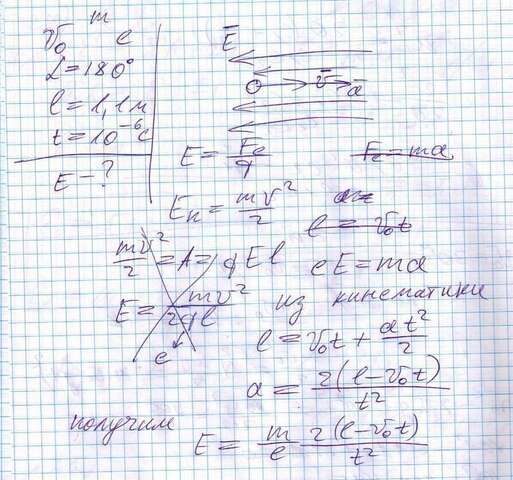 v₀ m e
α=180°
l=1,1м
t=10⁻⁶c
E-?
E̅
v̅ a̅
E = Fe/q
Fe = ma
Eк = mv²/2
a=
l = v₀t
mv²/2 = A = qEl
eE = ma
E = mv²/2ql
e
из кинематики
l = v₀t + at²/2
a = 2(l-v₀t)/t²
получим
E = m/e 2(l-v₀t)/t²